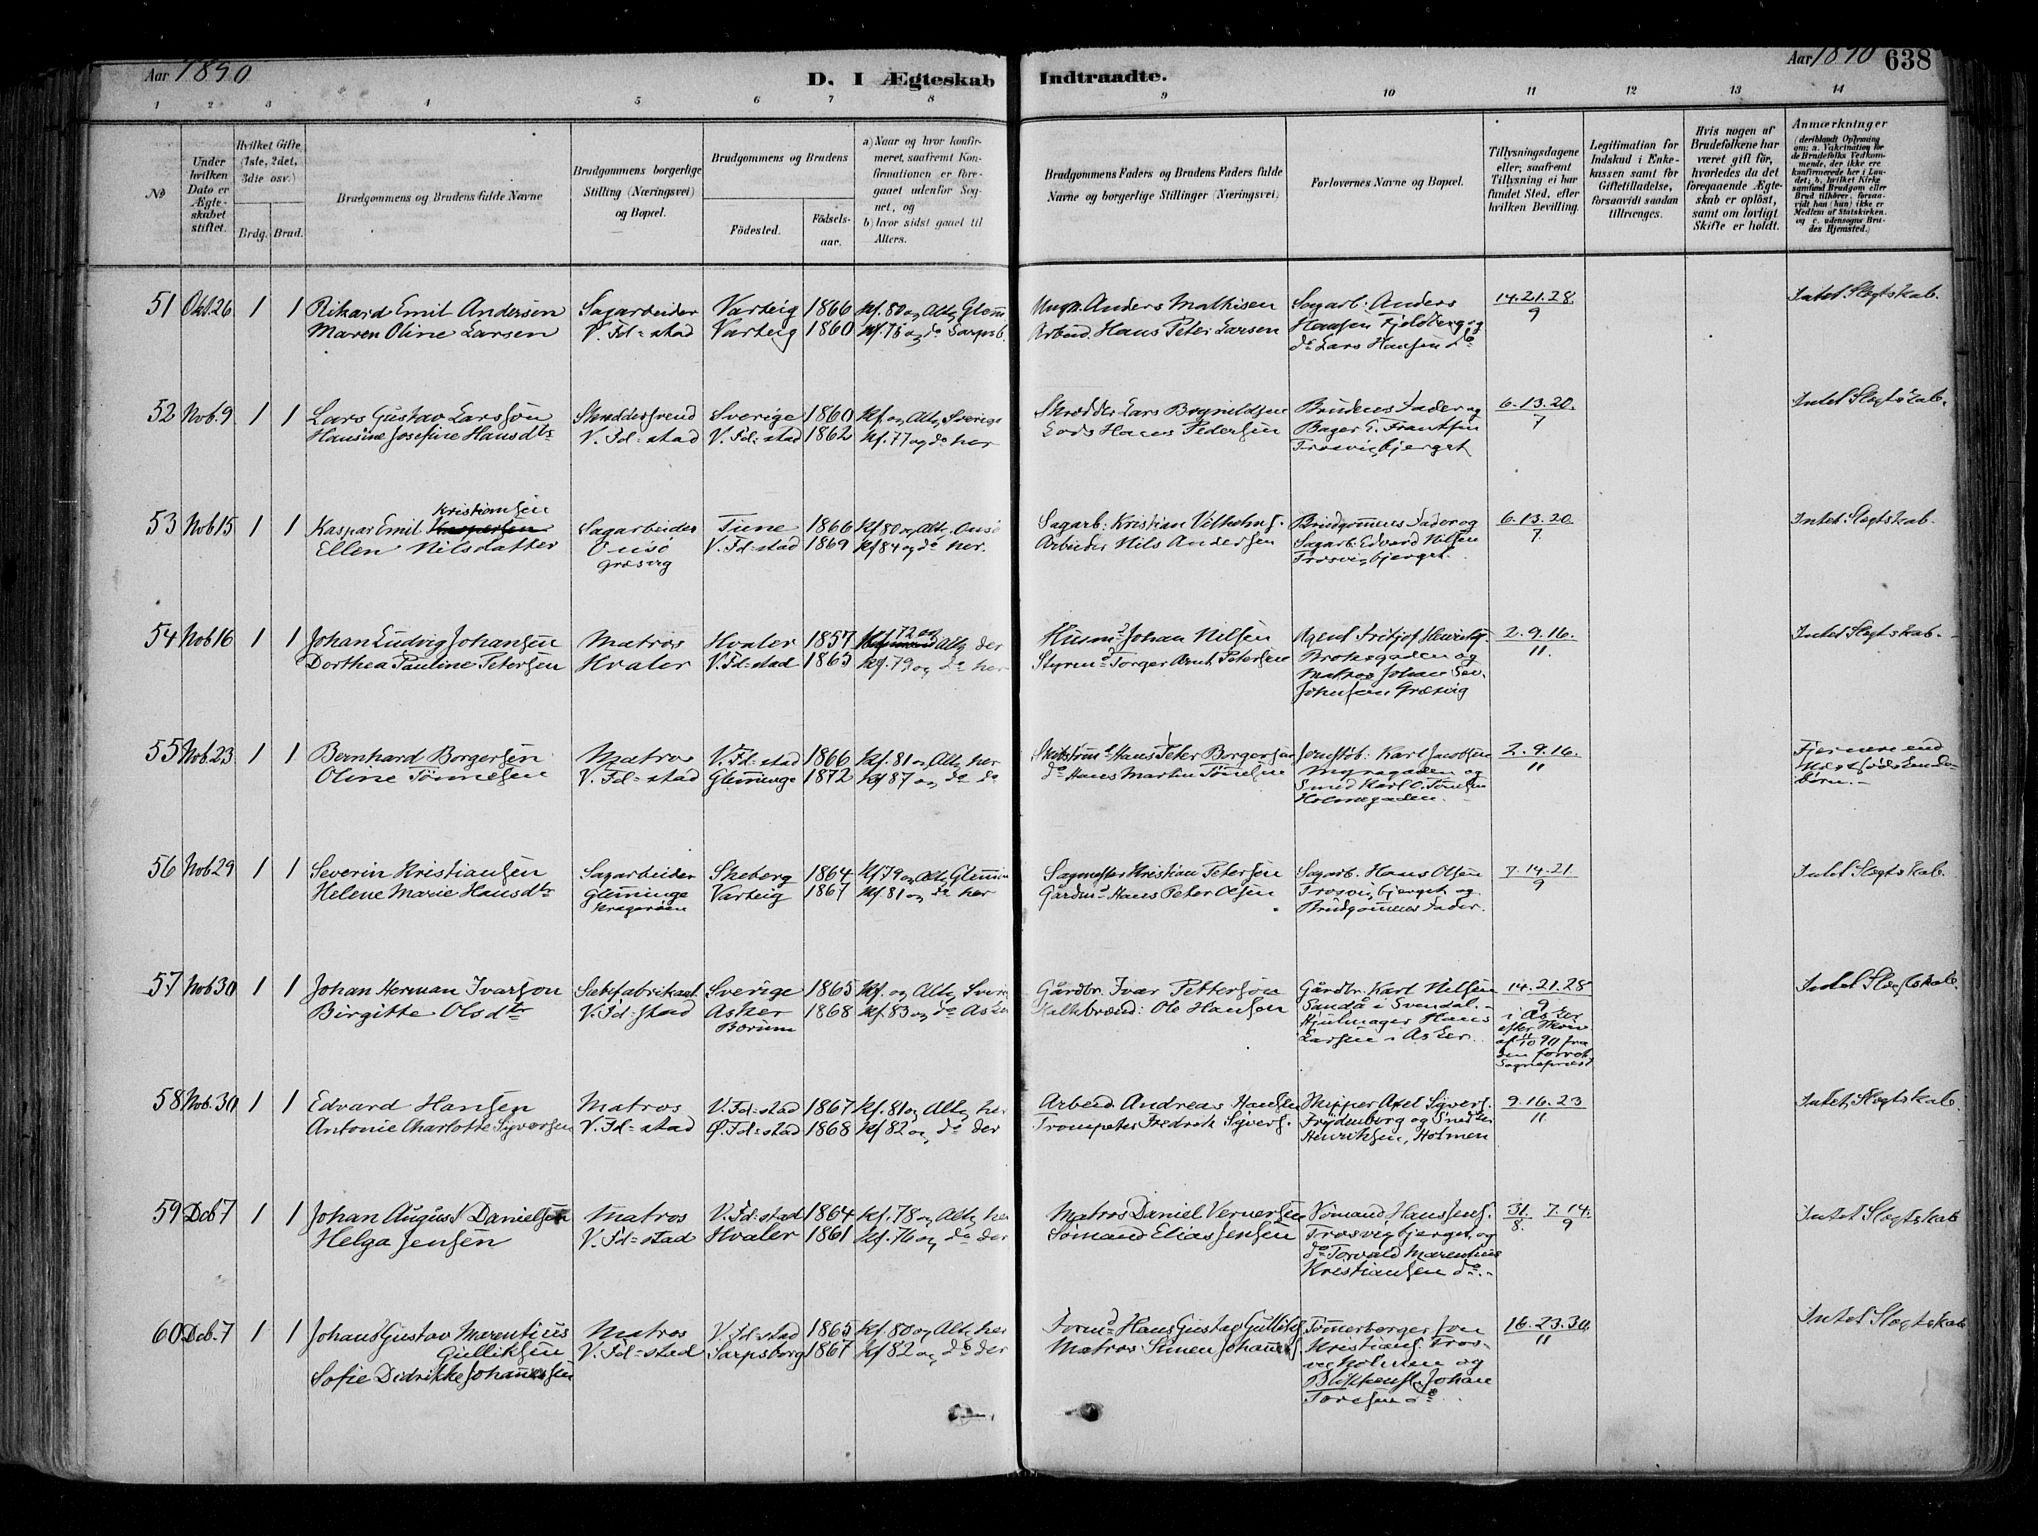 Aar 1890
D. I Ægteskab Indtraadte.
Aar 1890 638
1 2 3 4 5 6 7 8 9 10 11 12 13 14
No
Under hvilken Dato er Ægteskabet stiftet.
Hvilket Gifte (1ste, 2det, 3die osv.)
Brdg. Brud.
Brudgommens og Brudens fulde Navne
Brudgommens borgerlige Stilling (Næringsvei) og Bopæl.
Brudgommens og Brudens
Födested.
Födselsaar.
a) Naar og hvor konfirmeret, saafremt Konfirmationen er foregaaet udenfor Sognet, og
b) hvor sidst gaaet til Alters.
Brudgommens Faders og Brudens Faders fulde Navne og borgerlige Stillinger (Næringsvei)
Forlovernes Navne og Bopæl.
Tillysningsdagene eller, saafremt Tillysning ei har fundet Sted, efter hvilken Bevilling.
Legitimation for Indskud i Enkekassen samt for Giftetilladelse, forsaavidt saadan tiltrænges.
Hvis nogen af Brudefolkene har været gift før, hvorledes da det foregaaende Ægteskab er opløst, samt om lovligt Skifte er holdt.
Anmærkninger (deriblandt Oplysning om: a. Vakcination for de Brudefolks Vedkommende, der ikke ere konfirmerede her i Landet; b. hvilket Kirkesamfund Brudgom eller Brud tilhører, forsaavidt han (hun) ikke er Medlem af Statskirken. og c. udensogns Brudes Hjemsted.)
51 Okt.26 1 1 Rikard Emil Andersen Sagarbeider Varteig 1866 Kf. 80 og Altg Glem Anders Mathisen Sagarb. Anders 14.21.28 Intet Slegtskab.
Maren Oline Larsen V. Fd=stad Varteig 1860 Kf. 75 og do Sarpsb. Arbeid. Hans Peter Larsen Hansen Fjeldberg og 9
do Lars Hansen do
52 Nov.9 1 1 Lars Gustav Larsson Skreddersvend Sverige 1860 Kf. og Altg Sverige Skrædder Lars 6.13.20. Intet Slegtskab.
Brudens Fader og
Hansine Josefine Hansdtr V. Fd=stad V. Fd=stad 1862 Kf. 77 og do her Lods Hans Pedersen Bager 7
Trosvigbjerget
53 Nov15 1 1 Kaspar Emil Kristiansen Sagarbeider Tune 1866 Kf 80 og Altg Onsø Sagarb. Kristian Brudgommens Fader og 6.13.20 Intet Slegtskab.
Ellen Nilsdatter Onsö V. Fd=stad 1869 Kf 84 og do her. Arbeider Nils Andersen Sagarb. Edvard Nilsen 7
Græsvig Trosvigbjerget.
54 Nov16 1 1 Johan Ludvig Johansen Matros Hvaler 1857 Kf. 72 og Altg der Husmd Johan Nilsen Agent Fritjof 2.9.16. Intet Slegtskab.
Dorthea Pauline Petersen Hvaler V. Fd=stad 1865 Kf. 79 og do her Styrmd Torger Arnt Petersen Brohsgaden og 11.
Matros Johan Sev.
Johnsen Græsvig
55 Nov.23 1 1 Bernhard Borgersen Matros V. Fd=stad 1866 Kf. 81 og Altg her Hans Peter Borgersen Karl Jacobsen 2.9.16. Fjernere end
Oline Tönnesen V. Fd=stad Glemminge 1872 Kf 87 og do do do Hans Martin Myragaden og 11 börn.
Smed Karl O.
Holmegaden.
56 Nov29 1 1 Severin Kristiansen Sagarbeider Skeberg 1864 Kf 79 og Altg Glemm Sagmester Kristian Petersen Sagarb. Hans Olsen 7.14.21 Intet Slegtskab.
Helene Marie Hansdtr Glemminge Varteig 1867 Kf. 81 og do her Gårdmd Hans Peter Olsen Trosvigbjerget og 9
Kragerøen Brudgommens Fader.
57 Nov30 1 1 Johan Herman Ivarson Sæbefabrikant Sverige 1865 Kf. og Altg Sver Gårdbr. Ivar Petterson Gårdbr. Karl Nilsen 14.21.28 Intet Slegtskab.
Birgitte Olsdtr V. Fd=stad Asker 1868 Kf. 83 og do Asker Kalkbrænd: Ole Hansen Sandå i Svendal. 9
Bærum Hjulmager Hans i Asker
Larsen i Asker. efter
af 11/10 90 fra
den forret.
Sognepræst
58 Nov.30 1 1 Edvard Hansen Matros V. Fd=stad 1867 Kf. 81 og Altg her Arbeid. Andreas Hansen Skipper Axel Syvers. 9.16.23 Intet Slegtskab.
Antonie Charlotte Syversen V. Fd=stad Ø. Fd=stad 1868 Kf 82 og do der Trompeter Fredrik Syvers. Frydenberg og Snedker 11
Henriksen, Holmen
59 Deb7 1 1 Johan August Danielsen Matros V. Fd=stad 1864 Kf. 78 og Altg her Matros Daniel Vernersen Sømand Hans Jens. 31. 7.14. Intet Slegtskab
Helga Jensen V. Fd=stad Hvaler 1861 Kf. 76 og do der Sømand Elias Jensen Trosvigbjerget og 8 9
do Torvald Marentius
Kristiansen do.
60 Deb.7 1 1 Johans Gustav Marentius Matros V. Fd=stad 1865 Kf. 80 og Altg her Formd Hans Gustav Gulliks Tømmerborger Jon 16.23.30. Intet Slegtskab
Gulliksen V. Fd=stad Sarpsborg 1867 Kf 82 og do der Matros Simen Johannes. Kristians. Trosvig 11
Sofie Didrikke Johannessen Holmen og
Blikkensl. Johan
Toresen do